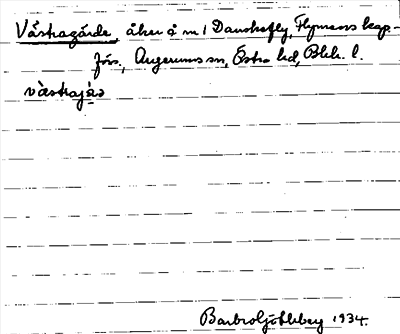 Västragärde, åker å nr 1 Danskefly, Flymens kap.-
förs., Augerums sn, Östra hd, Blek. l.
västraj
Barbro Söderberg 1934.